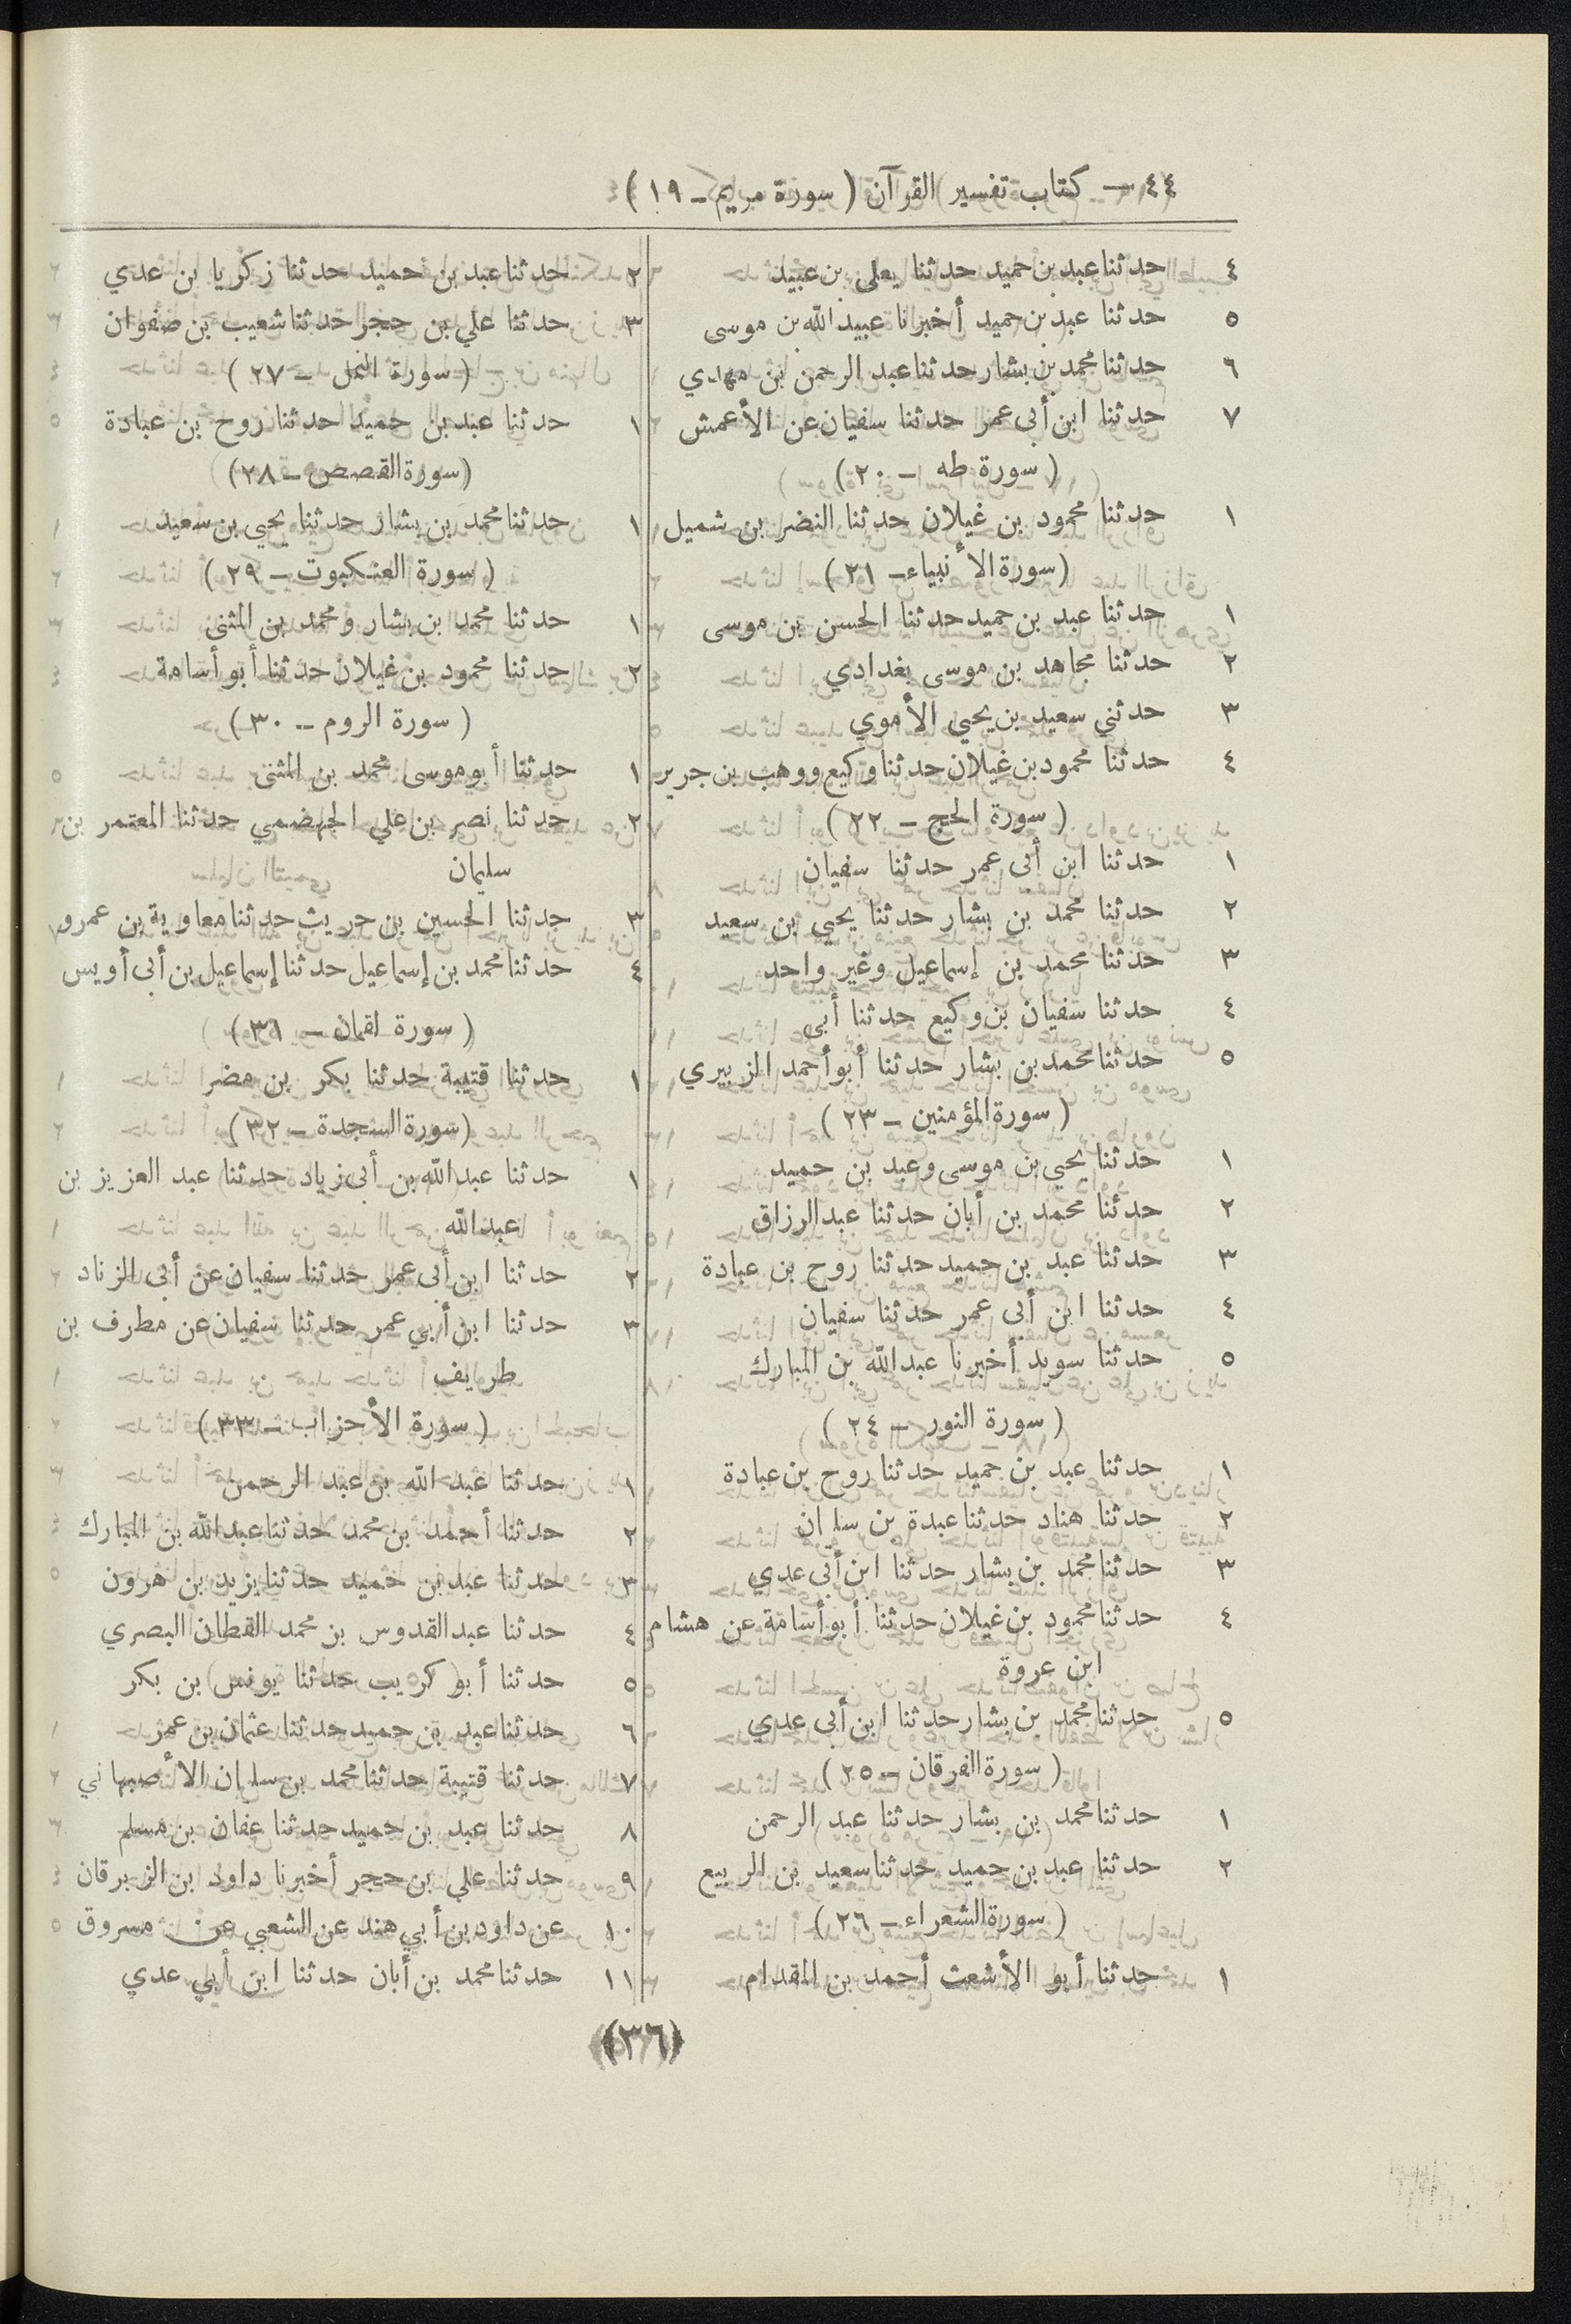 ٤٤ — كتاب تفسير القرآن ( سورة مريم ـ ١٩ )
٤ حدثنا عبد بن حميد حدثنا يعلى بن عبيد
٥ حدثنا عبد بن حميد أخبرنا عبيد الله بن موسى
٦ حدثنا محمد بن بشار حدثنا عبد الرحمن بن مهدي
٧ حدثنا ابن أبى عمر حدثنا سفيان عن الأعمش
( سورة طه ـ ٢٠ )
١ حدثنا محمود بن غيلان حدثنا النضر بن شميل
( سورة الأنبياء ـ ٢١ )
١ حدثنا عبد بن حميد حدثنا الحسن بن موسى
٢ حدثنا مجاهد بن موسى بغدادي
٣ حدثني سعيد بن يحيي الأموي
٤ حدثنا محمود بن غيلان حدثنا وكيع ووهب بن جرير
( سورة الحج ـ ٢٢ )
١ حدثنا ابن أبى عمر حدثنا سفيان
٢ حدثنا محمد بن بشار حدثنا يحيى بن سعيد
٣ حدثنا محمد بن إسماعيل وغير واحد
٤ حدثنا سفيان بن وكيع حدثنا أبي
٥ حدثنا محمد بن بشار حدثنا أبو أحمد الزبيري
( سورة المؤمنين ـ ٢٣ )
١ حدثنا يحيي بن موسى وعبد بن حميد
٢ حدثنا محمد بن أبان حدثنا عبد الرزاق
٣ حدثنا عبد بن حميد حدثنا روح بن عبادة
٤ حدثنا ابن أبى عمر حدثنا سفيان
٥ حدثنا سويد أخبرنا عبد الله بن المبارك
( سورة النور ـ ٢٤ )
١ حدثنا عبد بن حميد حدثنا روح بن عبادة
٢ حدثنا هناد حدثنا عبدة بن سليمان
٣ حدثنا محمد بن بشار حدثنا ابن أبى عدي
٤ حدثنا محمود بن غيلان حدثنا أبو أسامة عن هشام
ابن عروة
٥ حدثنا محمد بن بشار حدثنا ابن أبى عدي
( سورة الفرقان ـ ٢٥ )
١ حدثنا محمد بن بشار حدثنا عبد الرحمن
٢ حدثنا عبد بن حميد حدثنا سعيد بن الربيع
( سورة الشعراء ـ ٢٦ )
١ حدثنا أبو الأشعث أحمد بن المقدام
٢ حدثنا عبد بن حميد حدثنا زكريا بن عدي
٣ حدثنا علي بن حجر حدثنا شعيب بن صفوان
( سورة النمل ـ ٢٧ )
١ حدثنا عبد بن حميد حدثنا روح بن عبادة
( سورة القصص ـ ٢٨ )
١ حدثنا محمد بن بشار حدثنا يحيي بن سعيد
( سورة العنكبوت ـ ٢٩ )
١ حدثنا محمد بن بشار ومحمد بن المثنى
٢ حدثنا محمود بن غيلان حدثنا أبو أسامة
( سورة الروم ـ ٣٠ )
١ حدثنا أبو موسى محمد بن المثنى
٢ حدثنا نصر بن علي الجهضمي حدثنا المعتمر بن
سليمان
٣ حدثنا الحسين بن حريث حدثنا معاوية بن عمرو
٤ حدثنا محمد بن إسماعيل حدثنا إسماعيل بن أبى أويس
( سورة لقمان ـ ٣١ )
١ حدثنا قتيبة حدثنا بكر بن مضر
( سورة السجدة ـ ٣٢ )
١ حدثنا عبد الله بن أبى زياد حدثنا عبد العزيز بن
عبد الله
٢ حدثنا ابن أبى عمر حدثنا سفيان عن أبى الزناد
٣ حدثنا ابن أبي عمر حدثنا سفيان عن مطرف بن
طريف
( سورة الأحزاب ـ ٣٣ )
١ حدثنا عبد الله بن عبد الرحمن
٢ حدثنا أحمد بن محمد حدثنا عبد الله بن المبارك
٣ حدثنا عبد بن حميد حدثنا يزيد بن هرون
٤ حدثنا عبد القدوس بن محمد القطان البصري
٥ حدثنا أبو كريب حدثنا يونس بن بكر
٦ حدثنا عبد بن حميد حدثنا عثمان بن عمر
٧ حدثنا قتيبة حدثنا محمد بن سليمان الأصبهاني
٨ حدثنا عبد بن حميد حدثنا عفان بن مسلم
٩ حدثنا علي بن حجر أخبرنا داود بن الزبرقان
١٠ عن داود بن أبي هند عن الشعبي عن مسروق
١١ حدثنا محمد بن أبان حدثنا ابن أبي عدي
(٣٦)